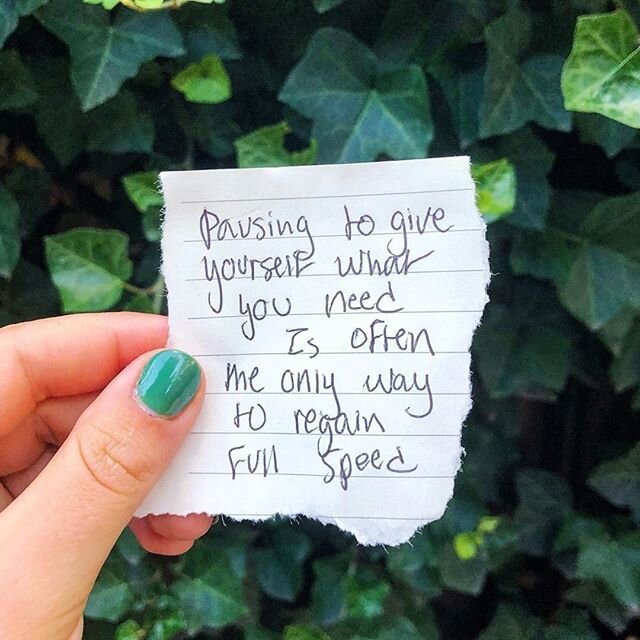 Pausing to give
yourself what
you need
Is often
the only way
to regain
Full Speed